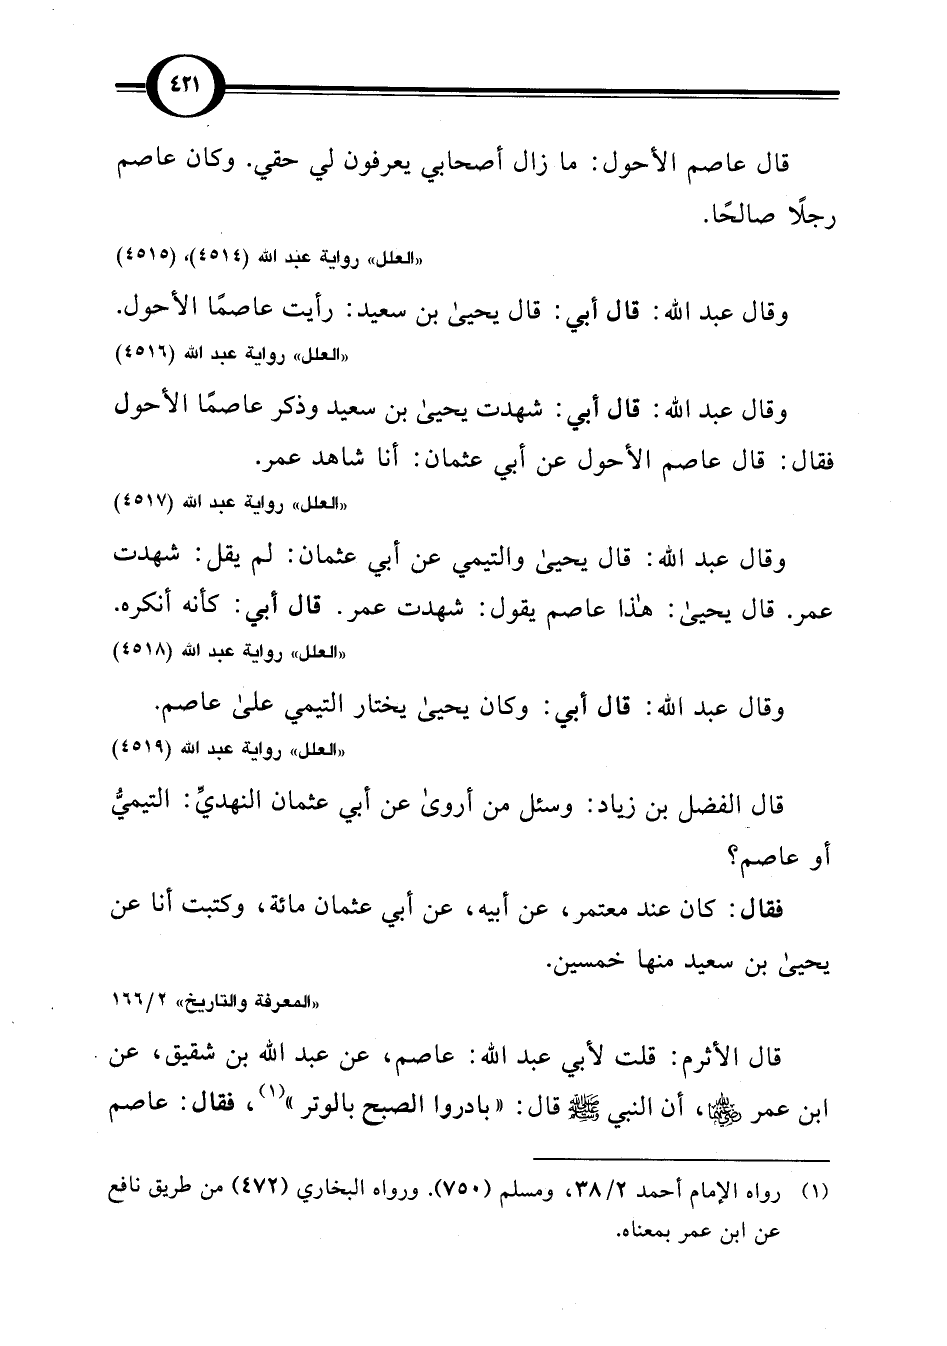 ٤٢١
قال عاصم الأحول: ما زال أصحابي يعرفون لي حقي. وكان عاصم
رجلًا صالحًا.
«العلل» رواية عبد الله (٤٥١٤)، (٤٥١٥)
وقال عبد الله: قال أبي: قال يحيىٰ بن سعيد: رأيت عاصمًا الأحول.
«العلل» رواية عبد الله (٤٥١٦)
وقال عبد الله: قال أبي: شهدت يحيىٰ بن سعيد وذكر عاصمًا الأحول
فقال: قال عاصم الأحول عن أبي عثمان: أنا شاهد عمر.
«العلل» رواية عبد الله (٤٥١٧)
وقال عبد الله: قال يحيىٰ والتيمي عن أبي عثمان: لم يقل: شهدت
عمر. قال يحيىٰ: هٰذا عاصم يقول: شهدت عمر. قال أبي: كأنه أنكره.
«العلل» رواية عبد الله (٤٥١٨)
وقال عبد الله: قال أبي: وكان يحيىٰ يختار التيمي علىٰ عاصم.
«العلل» رواية عبد الله (٤٥١٩)
قال الفضل بن زياد: وسئل من أروىٰ عن أبي عثمان النهديِّ: التيميُّ
أو عاصم؟
فقال: كان عند معتمر، عن أبيه، عن أبي عثمان مائة، وكتبت أنا عن
يحيىٰ بن سعيد منها خمسين.
«المعرفة والتاريخ» ٢/ ١٦٦
قال الأثرم: قلت لأبي عبد الله: عاصم، عن عبد الله بن شقيق، عن
ابن عمر رضي الله عنهما، أن النبي ﷺ قال: «بادروا الصبح بالوتر»(١)، فقال: عاصم
(١) رواه الإمام أحمد ٢/ ٣٨، ومسلم (٧٥٠). ورواه البخاري (٤٧٢) من طريق نافع
عن ابن عمر بمعناه.